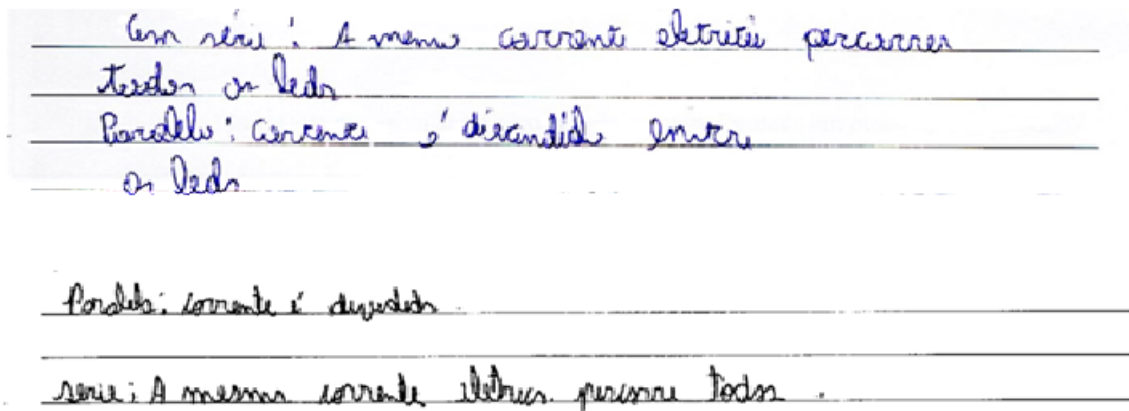 Em série: A mesma corrente eletrica percorrer
todos os leds
Paralelo: Corrente é dividida entre
os leds
Paralelo: corrente é dividida
serie: A mesma corrente eletrica percorre todos.